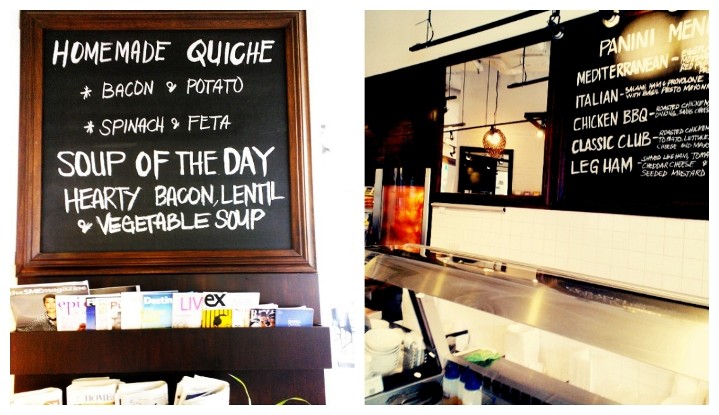 HOMEMADE QUICHE
* BACON & POTATO
* SPINACH & FETA
SOUP OF THE DAY
HEARTY BACON, LENTIL
& VEGETABLE SOUP
the SMEmagazine
epi
Destin
LIV
ex
HOME
PANINI MEN
MEDITERRANEAN -
ITALIAN - SALAMI, HAM & PROVOLONE
WITH BASIL PESTO MAYONNA
CHICKEN BBQ - ROASTED CHICKEN
CLASSIC CLUB - ROASTED CHICKEN
TOMATO, LETTUCE
CHEESE AND MAYO
LEG HAM - SHAVED LEG HAM, TOMA
CHEDDAR CHEESE &
SEEDED MUSTARD